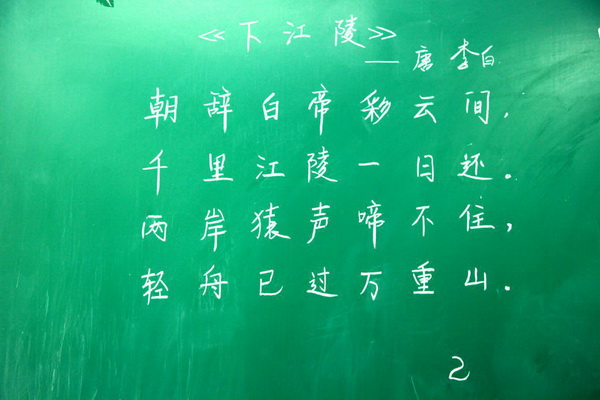 《下江陵》
——唐 李白
朝辞白帝彩云间，
千里江陵一日还。
两岸猿声啼不住，
轻舟已过万重山。
2